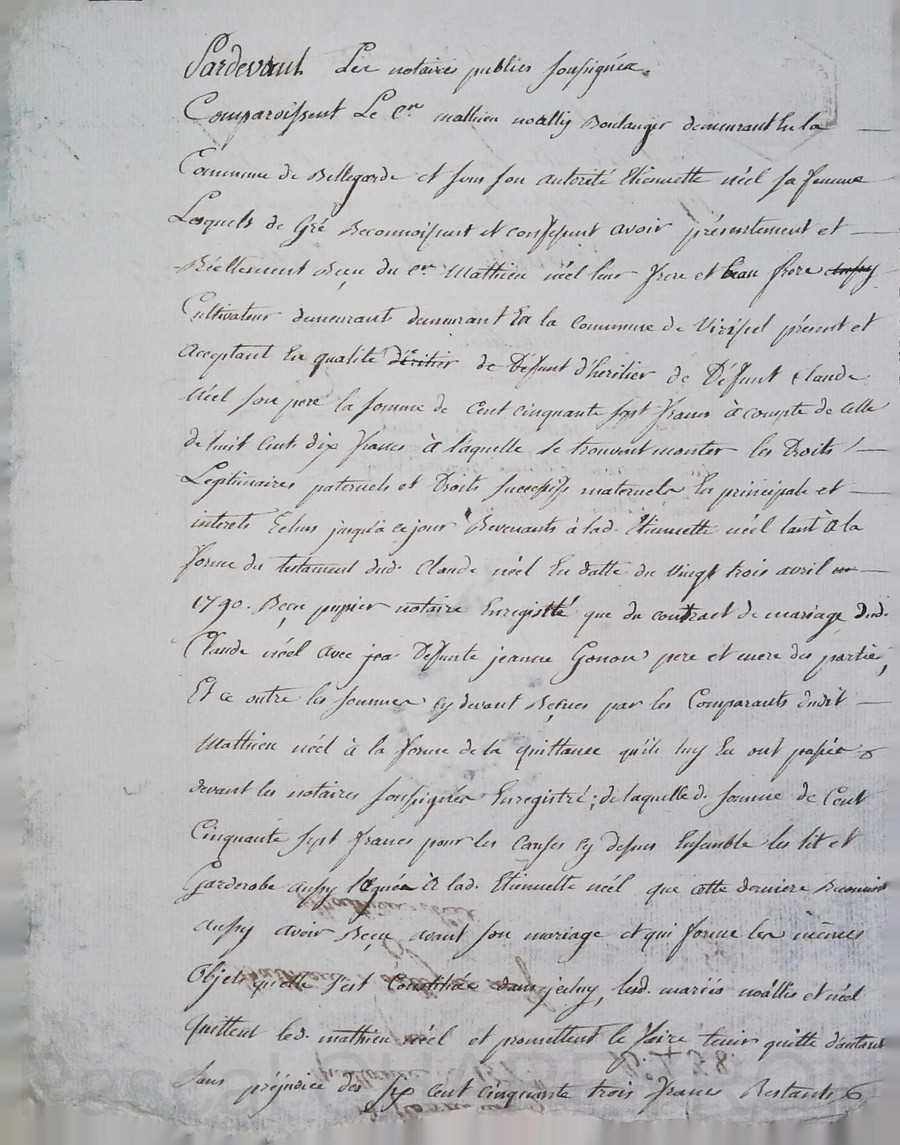 Pardevant Les notaires publics soussignés.
Comparoissent Le C.en mathieu noallis Boulanger demeurant En la
Commune de Bellegarde et sous son autorité Etiennette néel sa femme
Lesquels de Gré Reconnoissent et confessent avoir présentement et
Réellement Reçu du C.en Mathieu néel leur frere et beau frere aussy
Cultivateur demeurant demeurant En la Commune de Viricel présent et
acceptant En qualité d'Eritier de Défunt d'héritier de Défunt Claude
néel son pere la somme de Cent cinquante sept francs à compte de Celle
de huit Cents dix francs à laquelle se trouvent monter les Droits
Legitimaires paternels et Droits successifs maternels En principale et
interets Echus jusqu'a ce jour Revenants à lad. Etiennette néel tant à la
forme du testament dud. Claude néel En datte du vingt trois avril
1790. Reçu pupier notaire Enregistré que du contract de mariage Dud.
Claude néel avec Défunte jeanne Gonon pere et mere des parties,
Et ce outre les sommes cy devant Reçues par les Comparants dudit
Mathieu néel à la forme de la quittance qu'ils luy En ont passée
devant les notaires soussignés Enregistré; de laquelle d. somme de Cent
Cinquante sept francs pour les Causes cy dessus Ensemble les lit et
Garderobe aussy légués à lad. Etiennette néel que cette derniere Reconnoit
aussy avoir Reçu avant son mariage et qui forme les mêmes
Objets qu'elle s'est Constituée dans jceluy, lesd. mariés noallis et néel
quittent led. mathieu néel et promettent le faire tenir quitte d'autant
Sans préjudice des six cent cinquante trois francs Restants